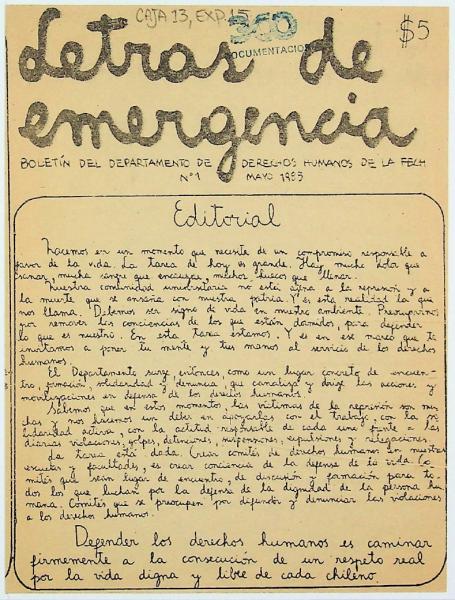 CAJA 13, EXP. 15
DOCUMENTACIO
$5
Letras de
emergencia
BOLETÍN DEL DEPARTAMENTO DE DERECHOS HUMANOS DE LA FECH
Nº1 MAYO 1985
Editorial
Nacemos en un momento que necesita de un compromiso responsable a
favor de la vida. La tarea de hoy es grande. Hay mucho dolor que
sanar, mucha sangre que enjugar, muchos huecos que llenar.
Nuestra comunidad universitaria no está ajena a la represión y a
la muerte que se ensaña con nuestra patria. Y es esta realidad la que
nos llama. Debemos ser signo de vida en nuestro ambiente. Preocuparnos
por remover las conciencias de los que están dormidos, para defender
lo que es nuestro. En esta tarea estamos. Y es en ese marco que te
invitamos a poner tu mente y tus manos al servicio de los derechos
humanos.
El Departamento surge, entonces, como un lugar concreto de encuen-
tro, formación, solidaridad y denuncia, que canaliza y dirige las acciones y
movilizaciones en defensa de los derechos humanos.
Sabemos que en estos momentos las víctimas de la represión son mu-
chas y nos hacemos un deber en apoyarlas con el trabajo, con la so
lidaridad activa, con la actitud responsable de cada uno frente a las
diarias violaciones, golpes, detenciones, suspensiones, expulsiones y relegaciones.
La tarea está dada. Crear comités de derechos humanos en nuestras
escuelas y facultades, es crear conciencia de la defensa de la vida. Co
mités que sean lugar de encuentro, de discusión y formación para to-
dos los que luchan por la defensa de la dignidad de la persona hu-
mana. Comités que se preocupen por difundir y denunciar las violaciones
a los derechos humanos.
Defender los derechos humanos es caminar
firmemente a la consecución de un respeto real
por la vida digna y libre de cada chileno.